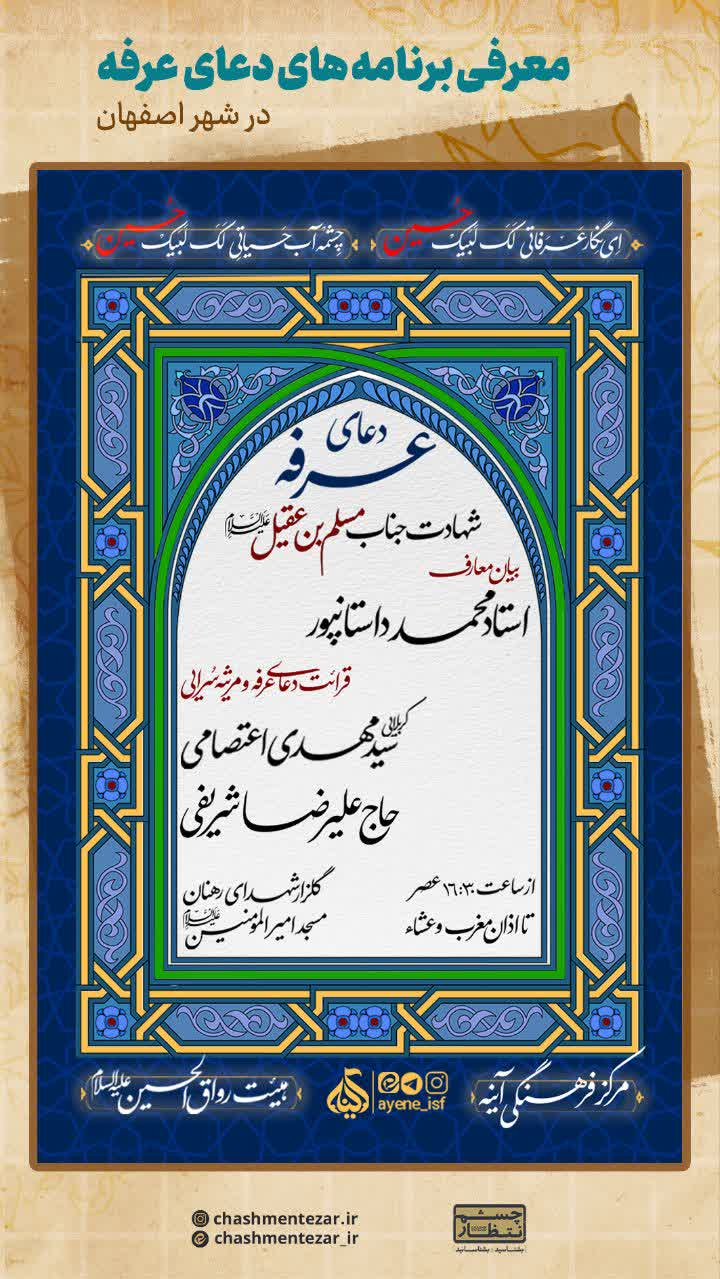 معرفی برنامه های دعای عرفه
در شهر اصفهان
ای نگار عرفاتی لک لبیک حسین
چشمه آب حیاتی لک لبیک حسین
دعای
عرفه
شهادت جناب مسلم بن عقیل علیه‌السلام
بیان معارف
استاد محمد داستانپور
قرائت دعای عرفه و مرثیه سرایی
کربلایی سید مهدی اعتصامی
حاج علیرضا شریفی
از ساعت ۱۶:۳۰ عصر
تا اذان مغرب و عشاء
گلزار شهدای رهنان
مسجد امیرالمومنین علیه‌السلام
مرکز فرهنگی آینه
ayene_isf
هیئت رواق الحسین علیه‌السلام
chashmentezar.ir
chashmentezar_ir
چشم انتظار
بشناسید ؛ بشناسانید